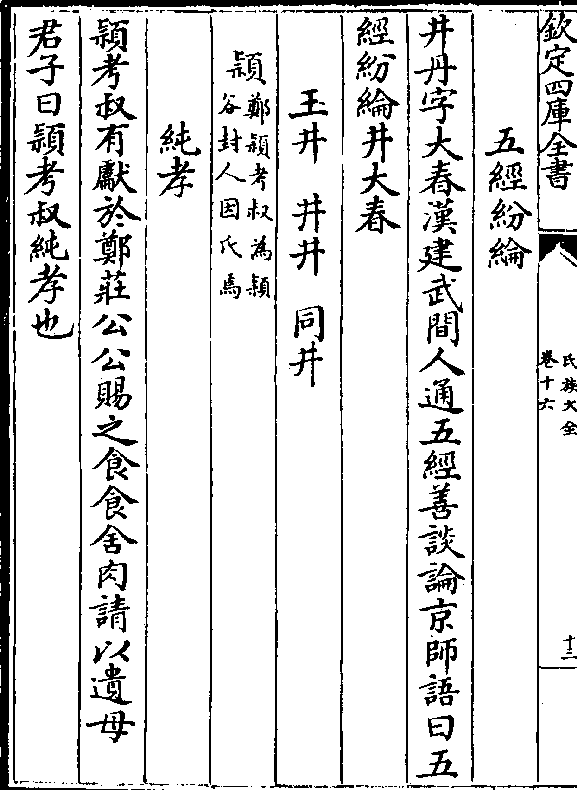 欽定四庫全書
氏族大全
卷十六
十二
五經紛綸
井丹字大春漢建武間人通五經善談論京師語曰五
經紛綸井大春
玉井　井井　同井
潁鄭潁考叔為潁
谷封人因氏焉
純孝
潁考叔有獻於鄭莊公公賜之食食舍肉請以遺母
君子曰潁考叔純孝也